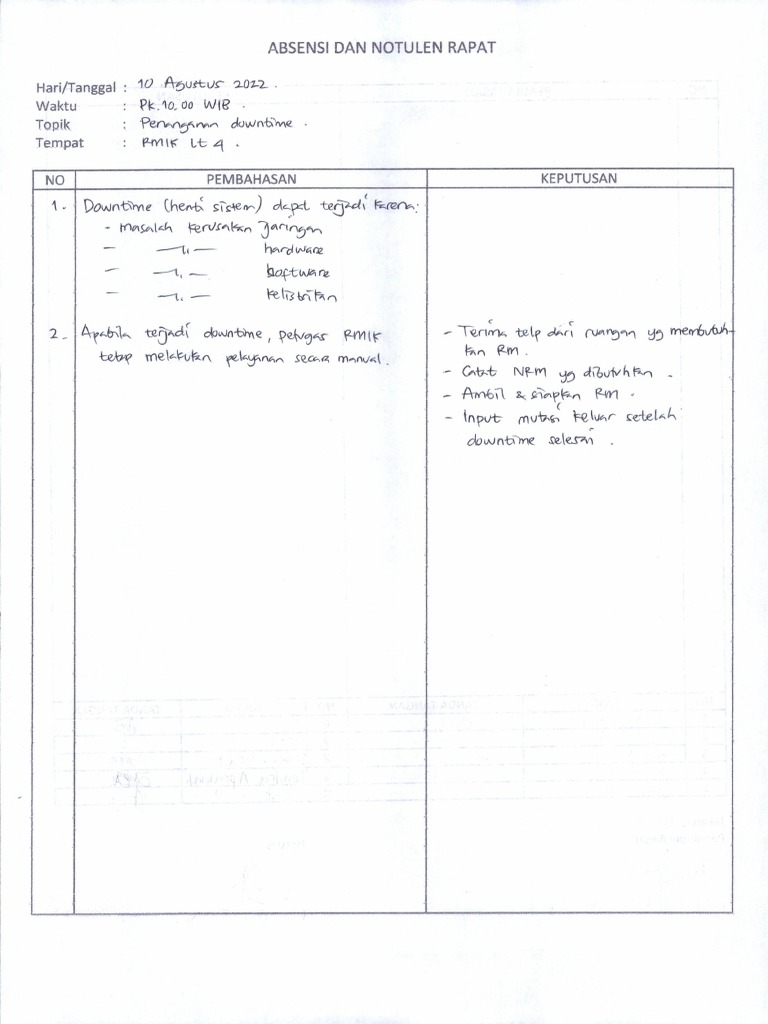 ABSENSI DAN NOTULEN RAPAT
Hari/Tanggal : 10 Agustus 2022.
Waktu : Pk.10.00 WIB.
Topik : Penanganan downtime.
Tempat : RMIK Lt 4.
NO PEMBAHASAN KEPUTUSAN
1. Downtime (henti sistem) dapat terjadi karena:
- masalah kerusakan jaringan
- —"— hardware
- —"— software
- —"— kelistrikan
2. Apabila terjadi downtime, petugas RMIK
tetap melakukan pelayanan secara manual.
- Terima telp dari ruangan yg membutuh-
kan RM.
- Catat NRM yg dibutuhkan.
- Ambil & siapkan RM.
- Input mutasi keluar setelah
downtime selesai.